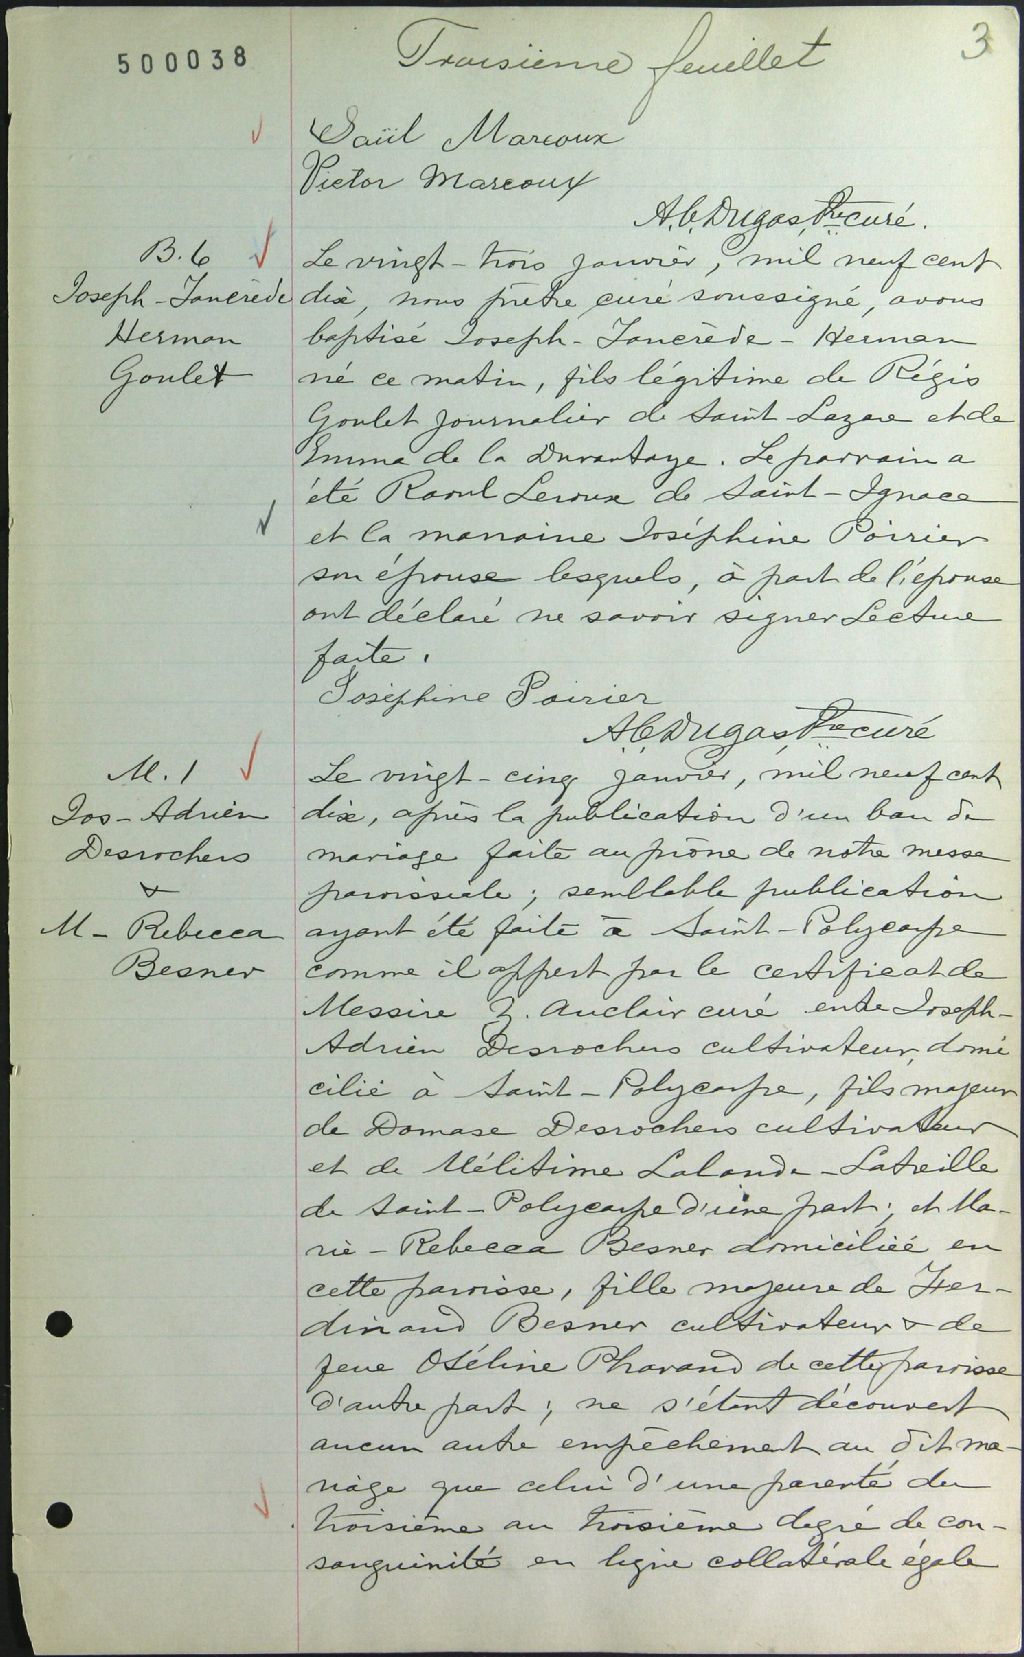 500038
Troisième feuillet
3
Saül Marcoux
Victor Marcoux
A.C. Dugas, Ptre curé.
B. 6
Joseph-Tancrède
Herman
Goulet
Le vingt-trois janvier, mil neuf cent
dix, nous prêtre curé soussigné, avons
baptisé Joseph-Tancrède-Herman
né ce matin, fils légitime de Régis
Goulet journalier de Saint-Lazare et de
Emma de la Durantaye. Le parrain a
été Raoul Leroux de Saint-Ignace
et la marraine Joséphine Poirier
son épouse lesquels, à part de l'épouse
ont déclaré ne savoir signer Lecture
faite.
Joséphine Poirier
A.C. Dugas, Ptre curé
M. 1
Jos-Adrien
Desrochers
&
M-Rebecca
Besner
Le vingt-cinq janvier, mil neuf cent
dix, après la publication d'un ban de
mariage faite au prône de notre messe
paroissiale; semblable publication
ayant été faite à Saint-Polycarpe
comme il appert par le certificat de
Messire Z. Auclair curé entre Joseph-
Adrien Desrochers cultivateur, domi
cilié à Saint-Polycarpe, fils majeur
de Domase Desrochers cultivateur
et de Mélitime Lalonde-Latreille
de Saint-Polycarpe d'une part; et Ma-
rie-Rebecca Besner domiciliée en
cette paroisse, fille majeure de Fer-
dinand Besner cultivateur & de
feue Oséline Pharand de cette paroisse
d'autre part; ne s'étant découvert
aucun autre empêchement au dit ma-
riage que celui d'une parenté du
troisième au troisième degré de con-
sanguinité en ligne collatérale égale